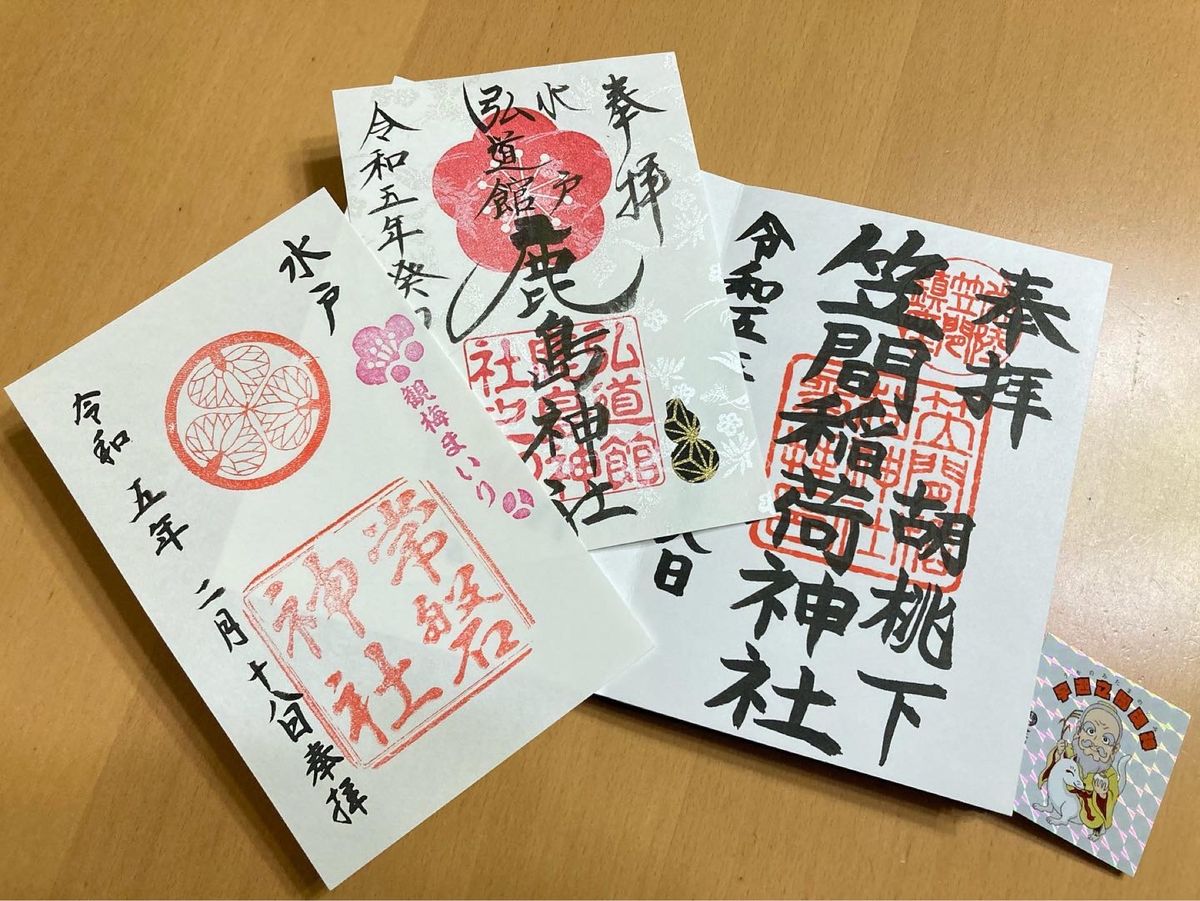 水戸
観梅まいり
常磐
神社
令和五年 二月十八日奉拝
奉拝
水戸
弘道館
鹿島神社
弘道館
令和五年癸
奉拝
胡桃下
笠間稲荷神社
令和五
八日